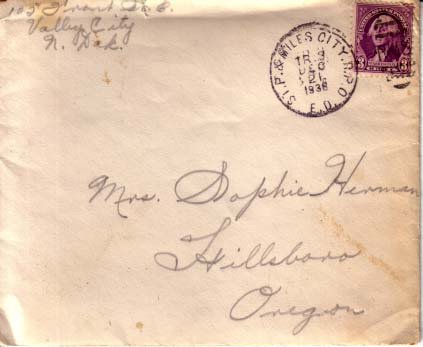 Valley City
N. Dak.
ST. P. & MILES CITY. R.P.O.
TR 3
DEC
21
1936
E.D.
3
Mrs. Sophie Herman
Hillsboro
Oregon